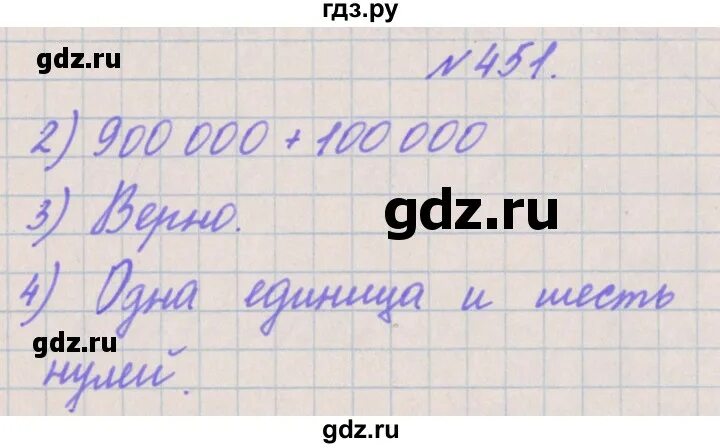 гдз.ру
gdz.ru
№451.
2) 900 000 + 100 000
3) Верно.
gdz.ru
4) Одна единица и шесть
gdz.ru
нулей.
gdz.ru